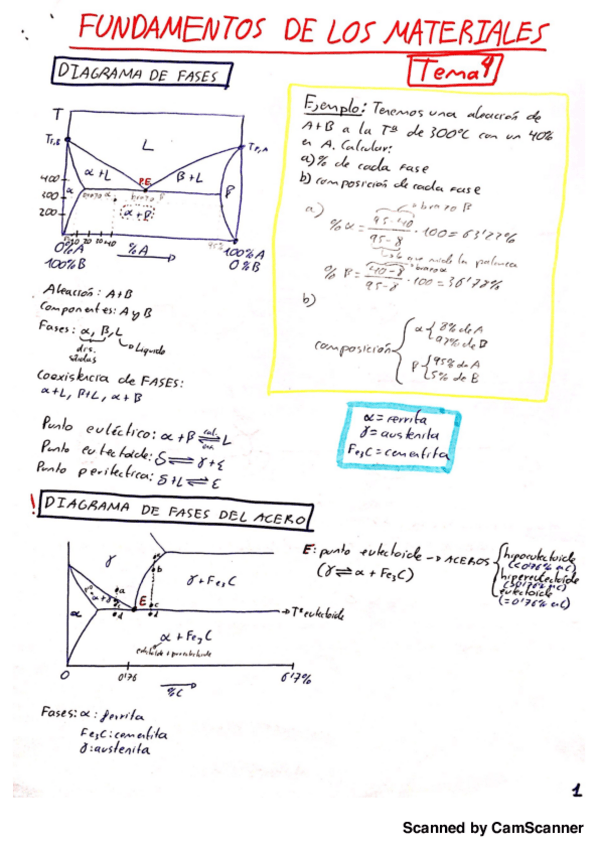 FUNDAMENTOS DE LOS MATERIALES
DIAGRAMA DE FASES
Tema 4
T
L
α+L
PE
β+L
α
β
α+β
400
300
200
10 20 30 40
95%
0%A
100%B
%A
100%A
0%B
Aleación: A+B
Componentes: A y B
Fases: α, β, L
Líquido
drs.
sólidas
Coexistencia de FASES:
α+L, β+L, α+β
Punto eutéctico: α+β ⇌ L
Punto eutectoide: δ ⇌ γ+ε
Punto peritéctica: δ+L ⇌ ε
Ejemplo: Tenemos una aleación de
A+B a la Tª de 300ºC con un 40%
en A. Calcular:
a) % de cada fase
b) composición de cada fase
a)
brazo β
%α = 95-40/95-8 · 100 = 63'22%
%β = 40-8/95-8 · 100 = 36'78%
b)
composición
α 8% de A
92% de B
β 95% de A
5% de B
α = ferrita
γ = austenita
Fe3C = cementita
! DIAGRAMA DE FASES DEL ACERO
γ
γ+Fe3C
α
α+γ
a
b
c
d
d
E
Tª eutectoide
α+Fe3C
0
0'76
%C
6'7%
E: punto eutectoide → ACEROS
(γ ⇌ α+Fe3C)
hipoeutectoide
(<0'76% C)
hipereutectoide
(>0'76% C)
eutectoide
(=0'76% C)
Fases: α: ferrita
Fe3C: cementita
γ: austenita
1
Scanned by CamScanner